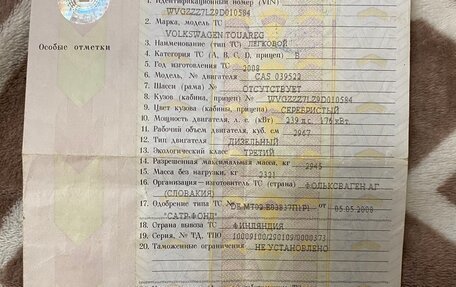 1. Идентификационный номер (VIN)
WVGZZZ7LZ9D010584
2. Марка, модель ТС
VOLKSWAGEN TOUAREG
Особые отметки
3. Наименование (тип ТС) ЛЕГКОВОЙ
4. Категория ТС (А, В, С, D, прицеп) В
5. Год изготовления ТС 2008
6. Модель, № двигателя CAS 039522
7. Шасси (рама) № ОТСУТСТВУЕТ
8. Кузов (кабина, прицеп) № WVGZZZ7LZ9D010584
9. Цвет кузова (кабины, прицепа) СЕРЕБРИСТЫЙ
10. Мощность двигателя, л. с. (кВт) 239 л.с. 176 кВт
11. Рабочий объем двигателя, куб. см 2967
12. Тип двигателя ДИЗЕЛЬНЫЙ
13. Экологический класс ТРЕТИЙ
14. Разрешенная максимальная масса, кг 2945
15. Масса без нагрузки, кг 2321
16. Организация—изготовитель ТС (страна) ФОЛЬКСВАГЕН АГ
(СЛОВАКИЯ)
17. Одобрение типа ТС № от 05.05.2008
"САТР-ФОНД"
18. Страна вывоза ТС ФИНЛЯНДИЯ
19. Серия, № ТД, ТПО 10009100/290109/0000373
20. Таможенные ограничения НЕ УСТАНОВЛЕНО